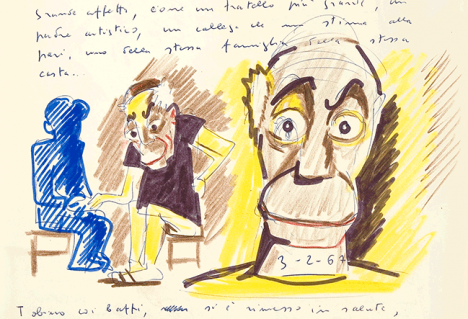 Grande affetto, come un fratello più grande, un
padre artistico, un collega che mi stima alla
pari, uno della stessa famiglia della stessa
casta...
3-2-67
coi baffi, si è rimesso in salute,